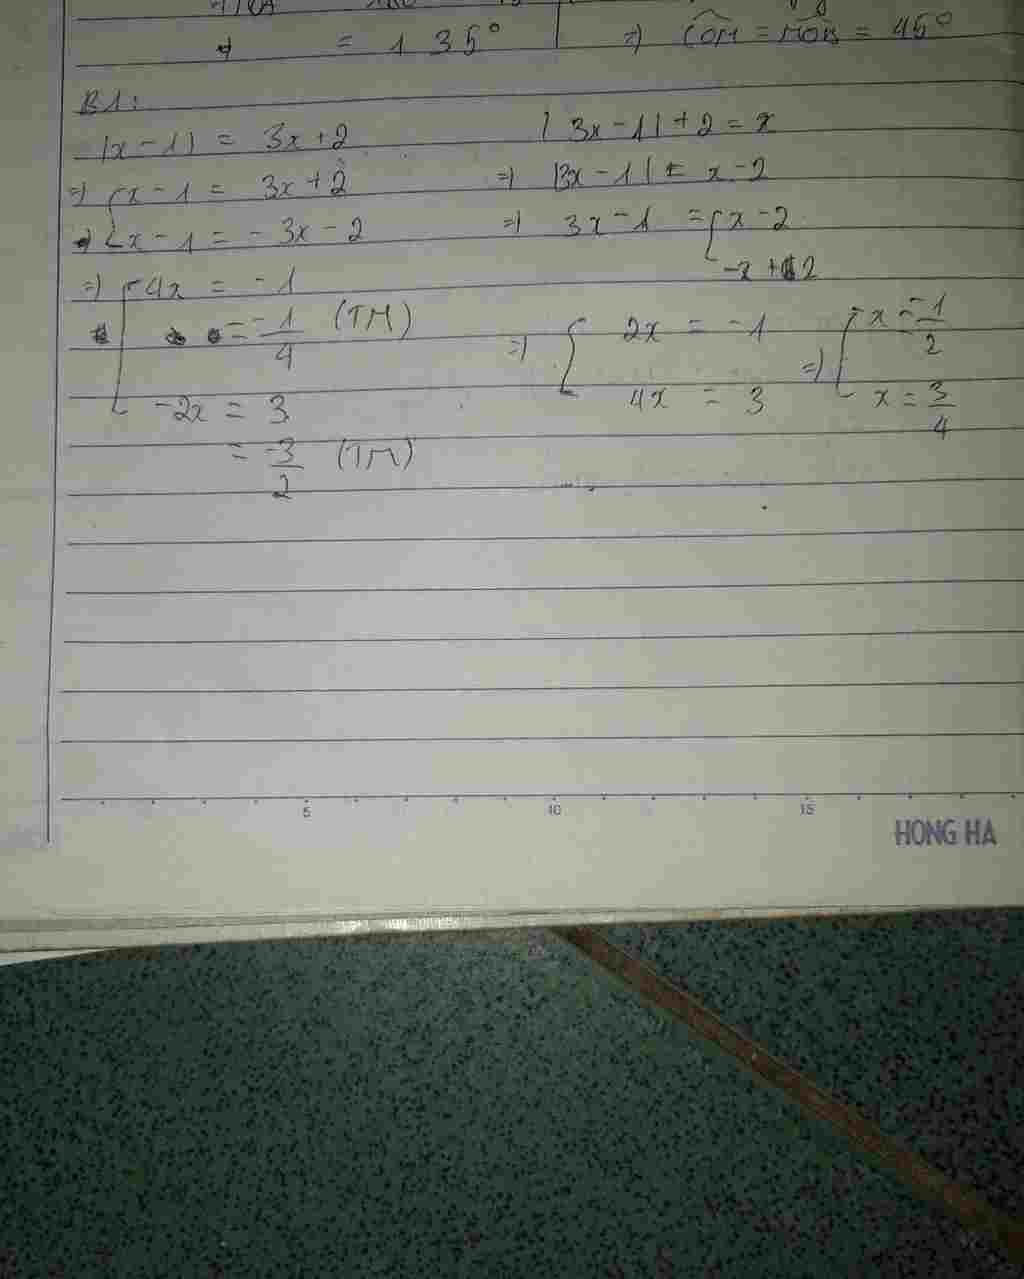 = 135° => COM = MOB = 45°
B1:
|x - 1| = 3x + 2
=> x - 1 = 3x + 2
x - 1 = - 3x - 2
=> 4x = - 1
= -1/4 (TM)
-2x = 3
= -3/2 (TM)
|3x - 1| + 2 = x
=> |3x - 1| = x - 2
=> 3x - 1 = x - 2
-x + 2
=> 2x = -1 => x = -1/2
4x = 3 x = 3/4
5 10 15
HONG HA